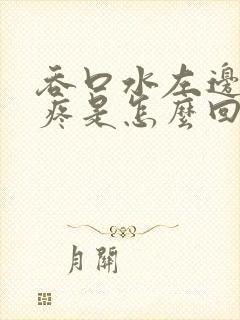 吞口水左邊
疼是怎麼回
月關